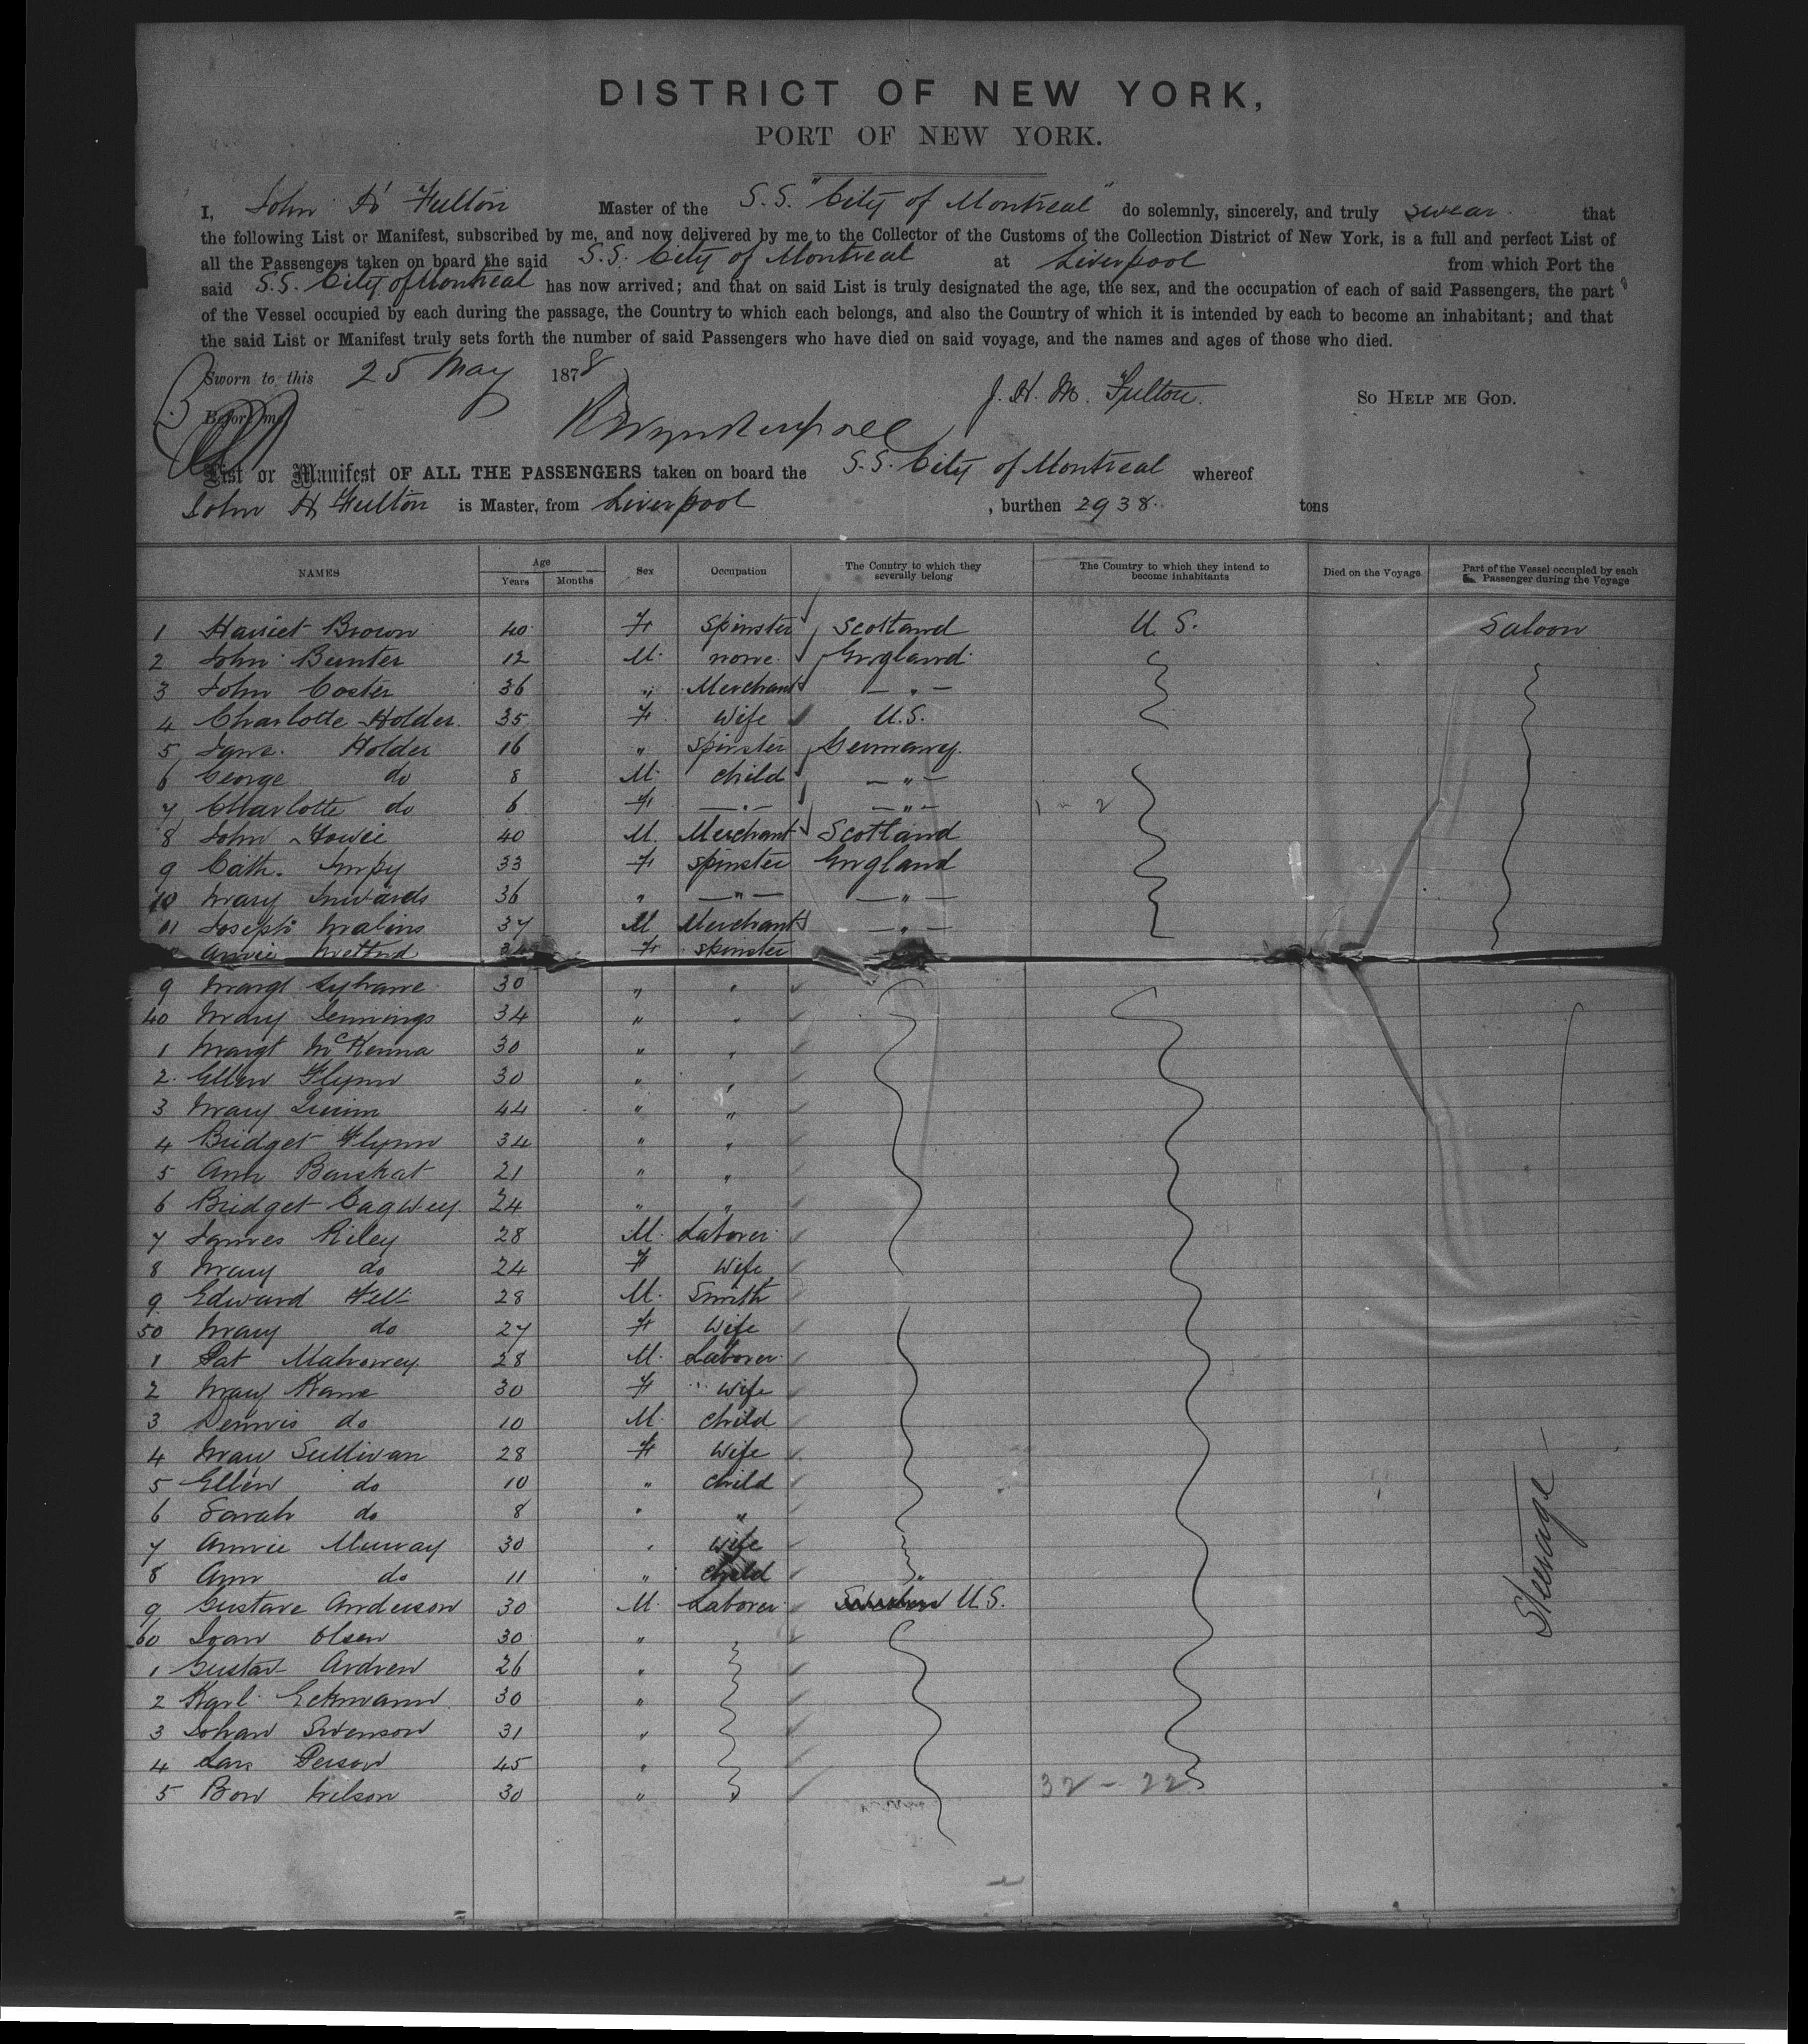 DISTRICT OF NEW YORK,
PORT OF NEW YORK.
I, John H Fulton Master of the S.S. "City of Montreal" do solemnly, sincerely, and truly swear. that
the following List or Manifest, subscribed by me, and now delivered by me to the Collector of the Customs of the Collection District of New York, is a full and perfect List of
all the Passengers taken on board the said S.S. City of Montreal at Liverpool from which Port the
said S.S. City of Montreal has now arrived; and that on said List is truly designated the age, the sex, and the occupation of each of said Passengers, the part
of the Vessel occupied by each during the passage, the Country to which each belongs, and also the Country of which it is intended by each to become an inhabitant; and that
the said List or Manifest truly sets forth the number of said Passengers who have died on said voyage, and the names and ages of those who died.
Sworn to this 25 May 1878
J. H. M. Fulton. SO HELP ME GOD.
Before me
List or Manifest OF ALL THE PASSENGERS taken on board the S.S. City of Montreal whereof
John H Fulton is Master, from Liverpool , burthen 2938. tons
NAMES Age Years Months Sex Occupation The Country to which they severally belong The Country to which they intend to become inhabitants Died on the Voyage Part of the Vessel occupied by each Passenger during the Voyage
1 Harriet Brown 40 F Spinster Scotland U.S. Saloon
2 John Bunter 12 M. none England
3 John Coster 36 " Merchant — " —
4 Charlotte Holder. 35 F Wife U.S.
5 Jane. Holder 16 " Spinster Germany
6 George do 8 M. child — " —
7 Charlotte do 6 F — " — — " —
8 John Howie 40 M. Merchant Scotland
9 Cath. Impy 33 F Spinster England
10 Mary Inwards 36 " — " — — " —
11 Joseph Malins 37 M Merchant — " —
Annie F Spinster
9 Margt 30 " "
40 Mary Jennings 34 " "
1 Margt McKenna 30 " "
2. Ellen Flynn 30 " "
3 Mary Quinn 44 " "
4 Bridget Flynn 34 " "
5 Ann 21 " "
6 Bridget 24 " "
7 James Riley 28 M. Laborer
8 Mary do 24 F Wife
9 Edward Fell 28 M. Smith
50 Mary do 27 F Wife
1 Pat Mahoney 28 M. Laborer
2 Mary Kane 30 F Wife
3 Dennis do 10 M. child
4 Mary Sullivan 28 F Wife
5 Ellen do 10 " child
6 Sarah do 8 " "
7 Annie Murray 30 " Wife
8 Ann do 11 " child
9 Gustave Anderson 30 M. Laborer U.S.
60 Olsen 30 "
1 Gustav 26 "
2 Karl Eckmann 30 "
3 Johan Svenson 31 "
4 Lars Person 45 "
5 30 "
32 - 22
Steerage